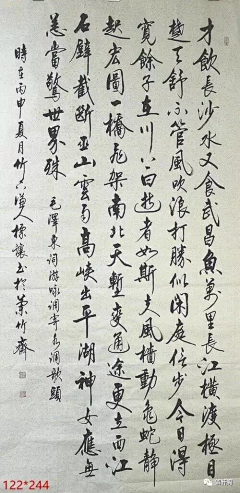 才飲長沙水又食武昌魚萬里長江橫渡極目
楚天舒不管風吹浪打勝似閑庭信步今日得
寬餘子在川上曰逝者如斯夫風檣動龜蛇靜
起宏圖一橋飛架南北天塹變通途更立西江
石壁截斷巫山雲雨高峽出平湖神女應無
恙當驚世界殊 毛澤東詞游泳詞寄水調歌頭
時在丙申夏月竹人標讓書於紫竹齋
122*244